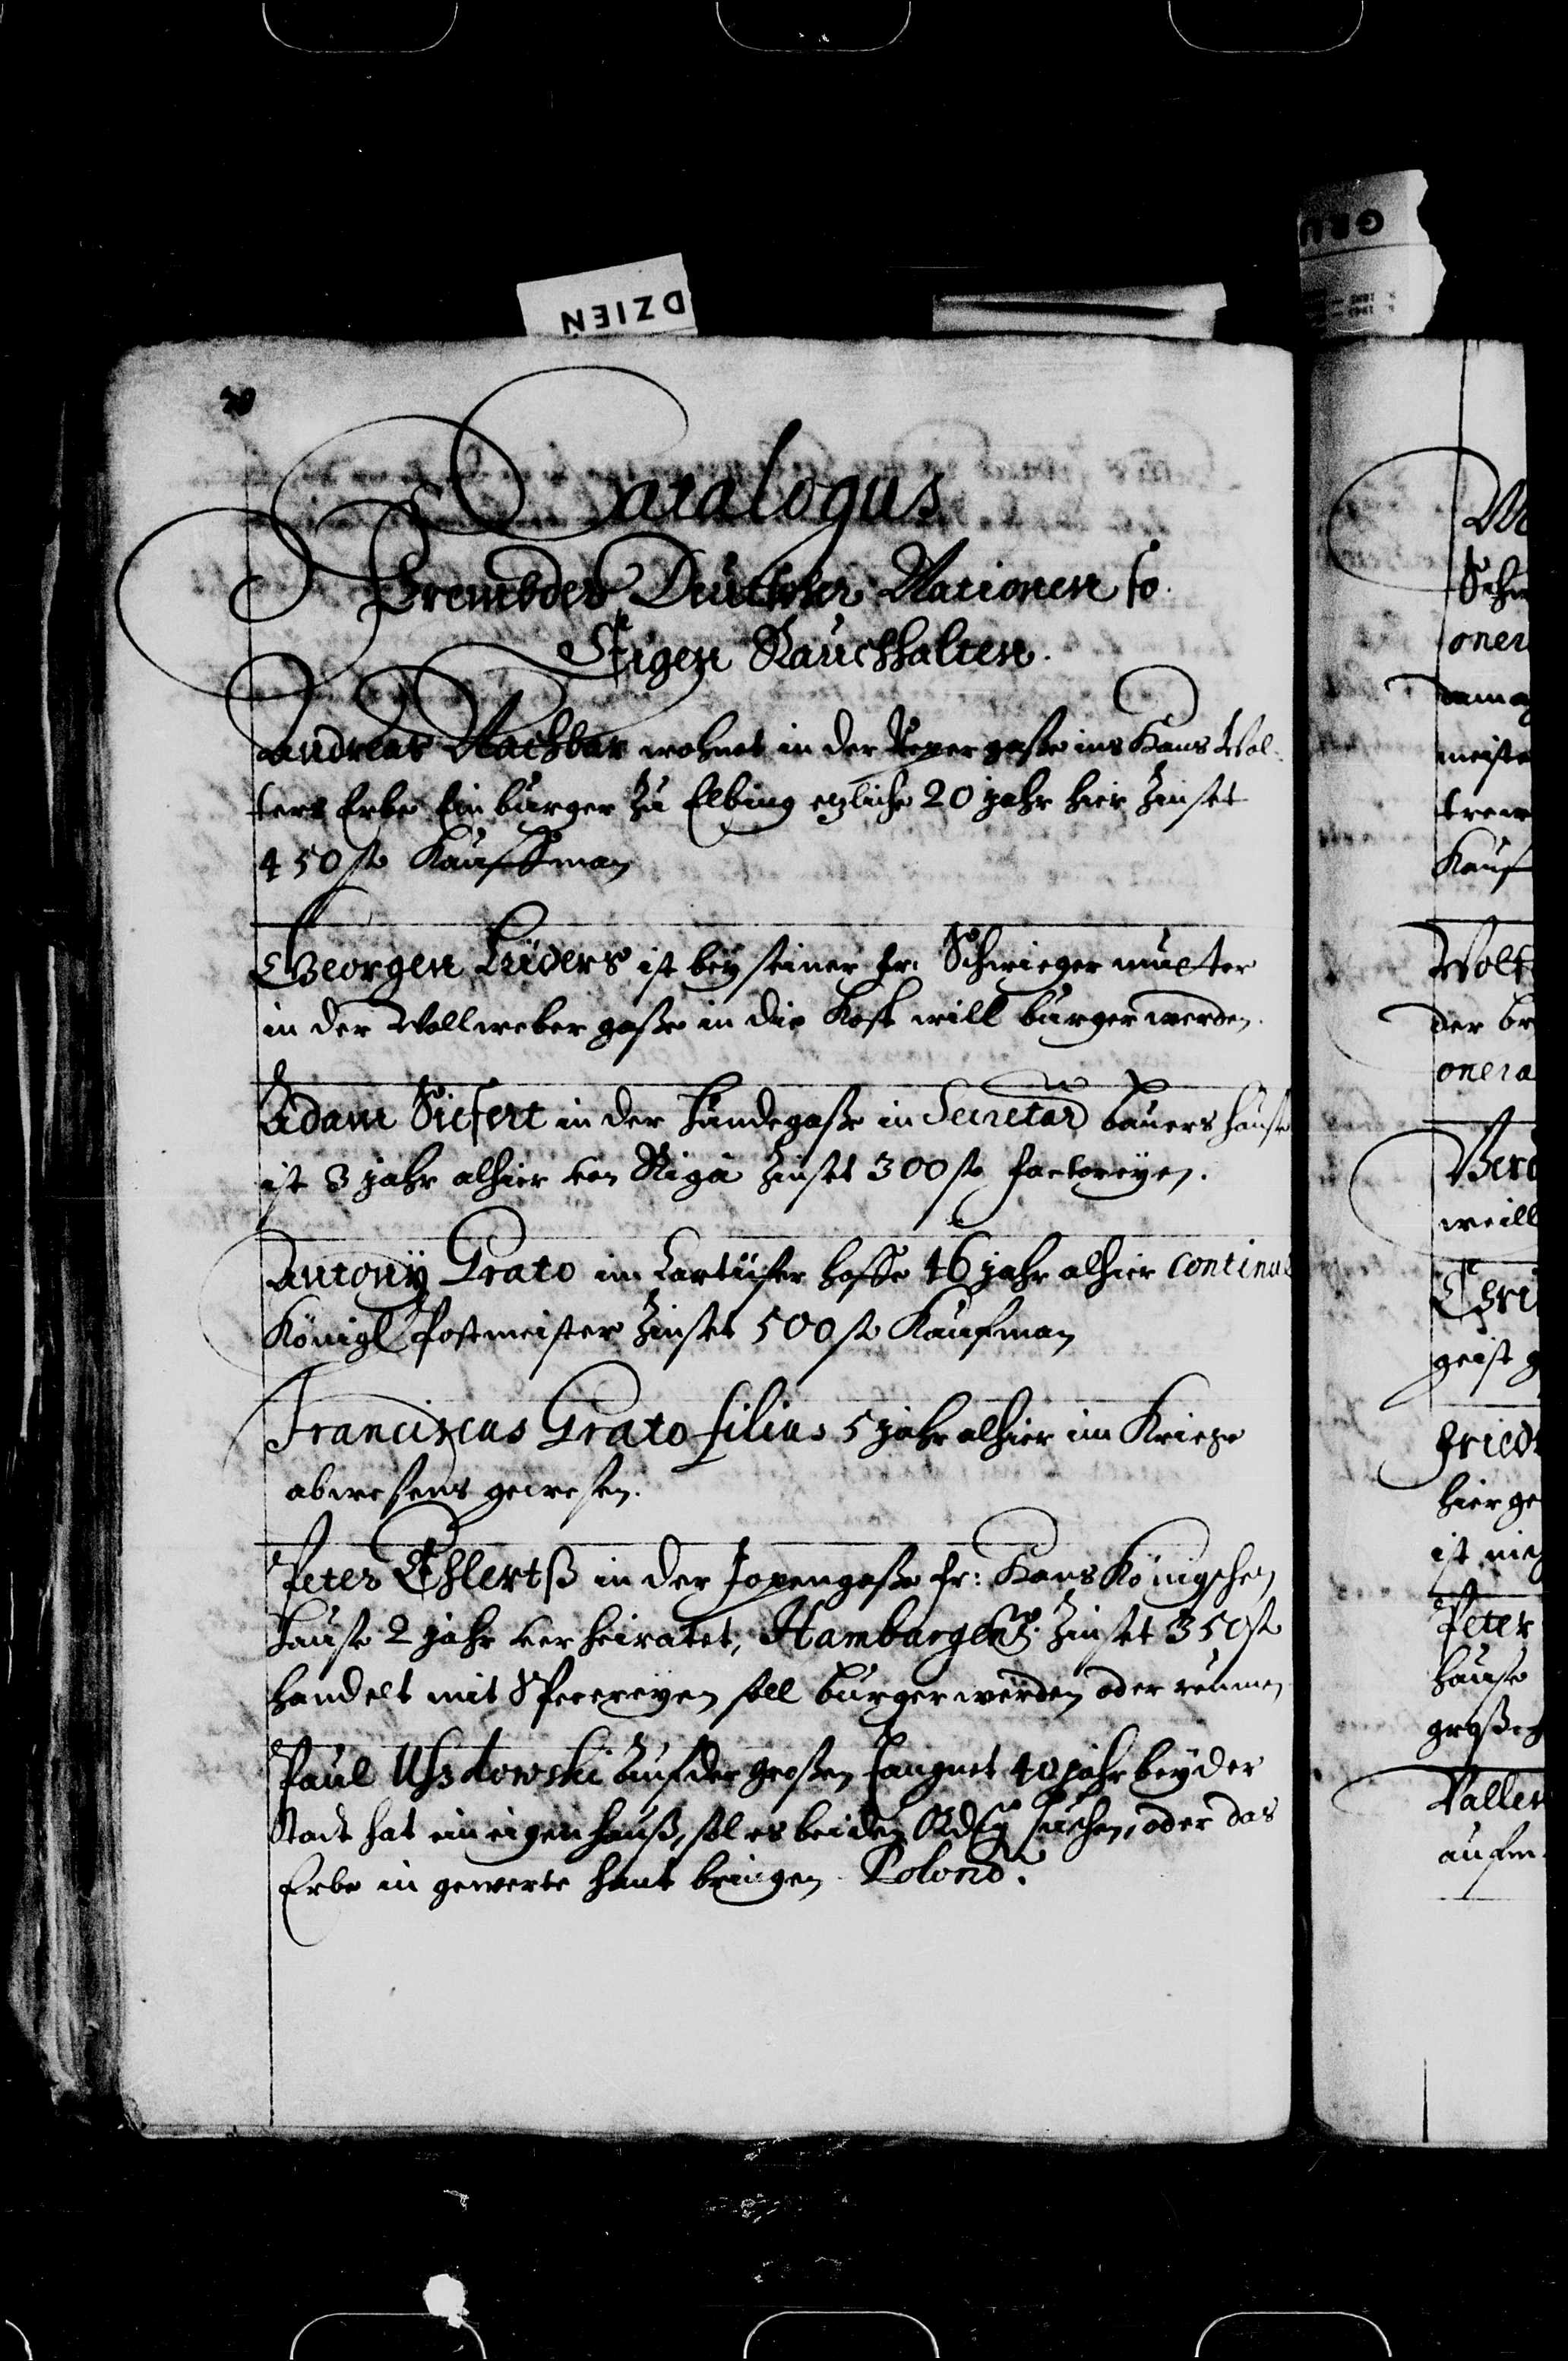 20
DZIEŃ
GRU
Catalogus
Frembder Deutscher Nationen so
Eigen Rauch halten.
Andreas Nachbar wohnet in der Reper gaße ins Hans Wol-
ters Erbe Ein burger zu Elbing etzliche 20 jahr hier zinset
450 fl Kauffman
Georgen Lüders ist bey seiner fr: Schwieger mutter
in der Wollweber gaße in die Kost will burger werden.
Adam Siefert in der Hundegaße in Secretar bauers hause
ist 3 jahr alhier von Riga zinset 300 fl factoreyen.
Antony Grato im Cartüser hoffe 46 jahr alhier continue
Königl Postmeister zinset 500 fl Kaufman
Franciscus Grato filius 5 jahr alhier im Kriege
abwesens gewesen.
Peter Ehlertß in der Jopengaße fr: Hans Königschen
Hause 2 jahr verheiratet, Hamburgens. zinset 350 fl
handelt mit Specereyen soll burger werden oder reumen
Paul auf der großen 40 jahr bey der
Stadt hat ein eigen hauß, sol es bei den suchen, oder das
Erbe in gewerte hant bringen Polono.
Sche
oner
meiste
trew
Kauf
Wolt
der br
onera
weill
Chri
geist g
friedr
hier ge
ist nich
Peter
hause
Vallen